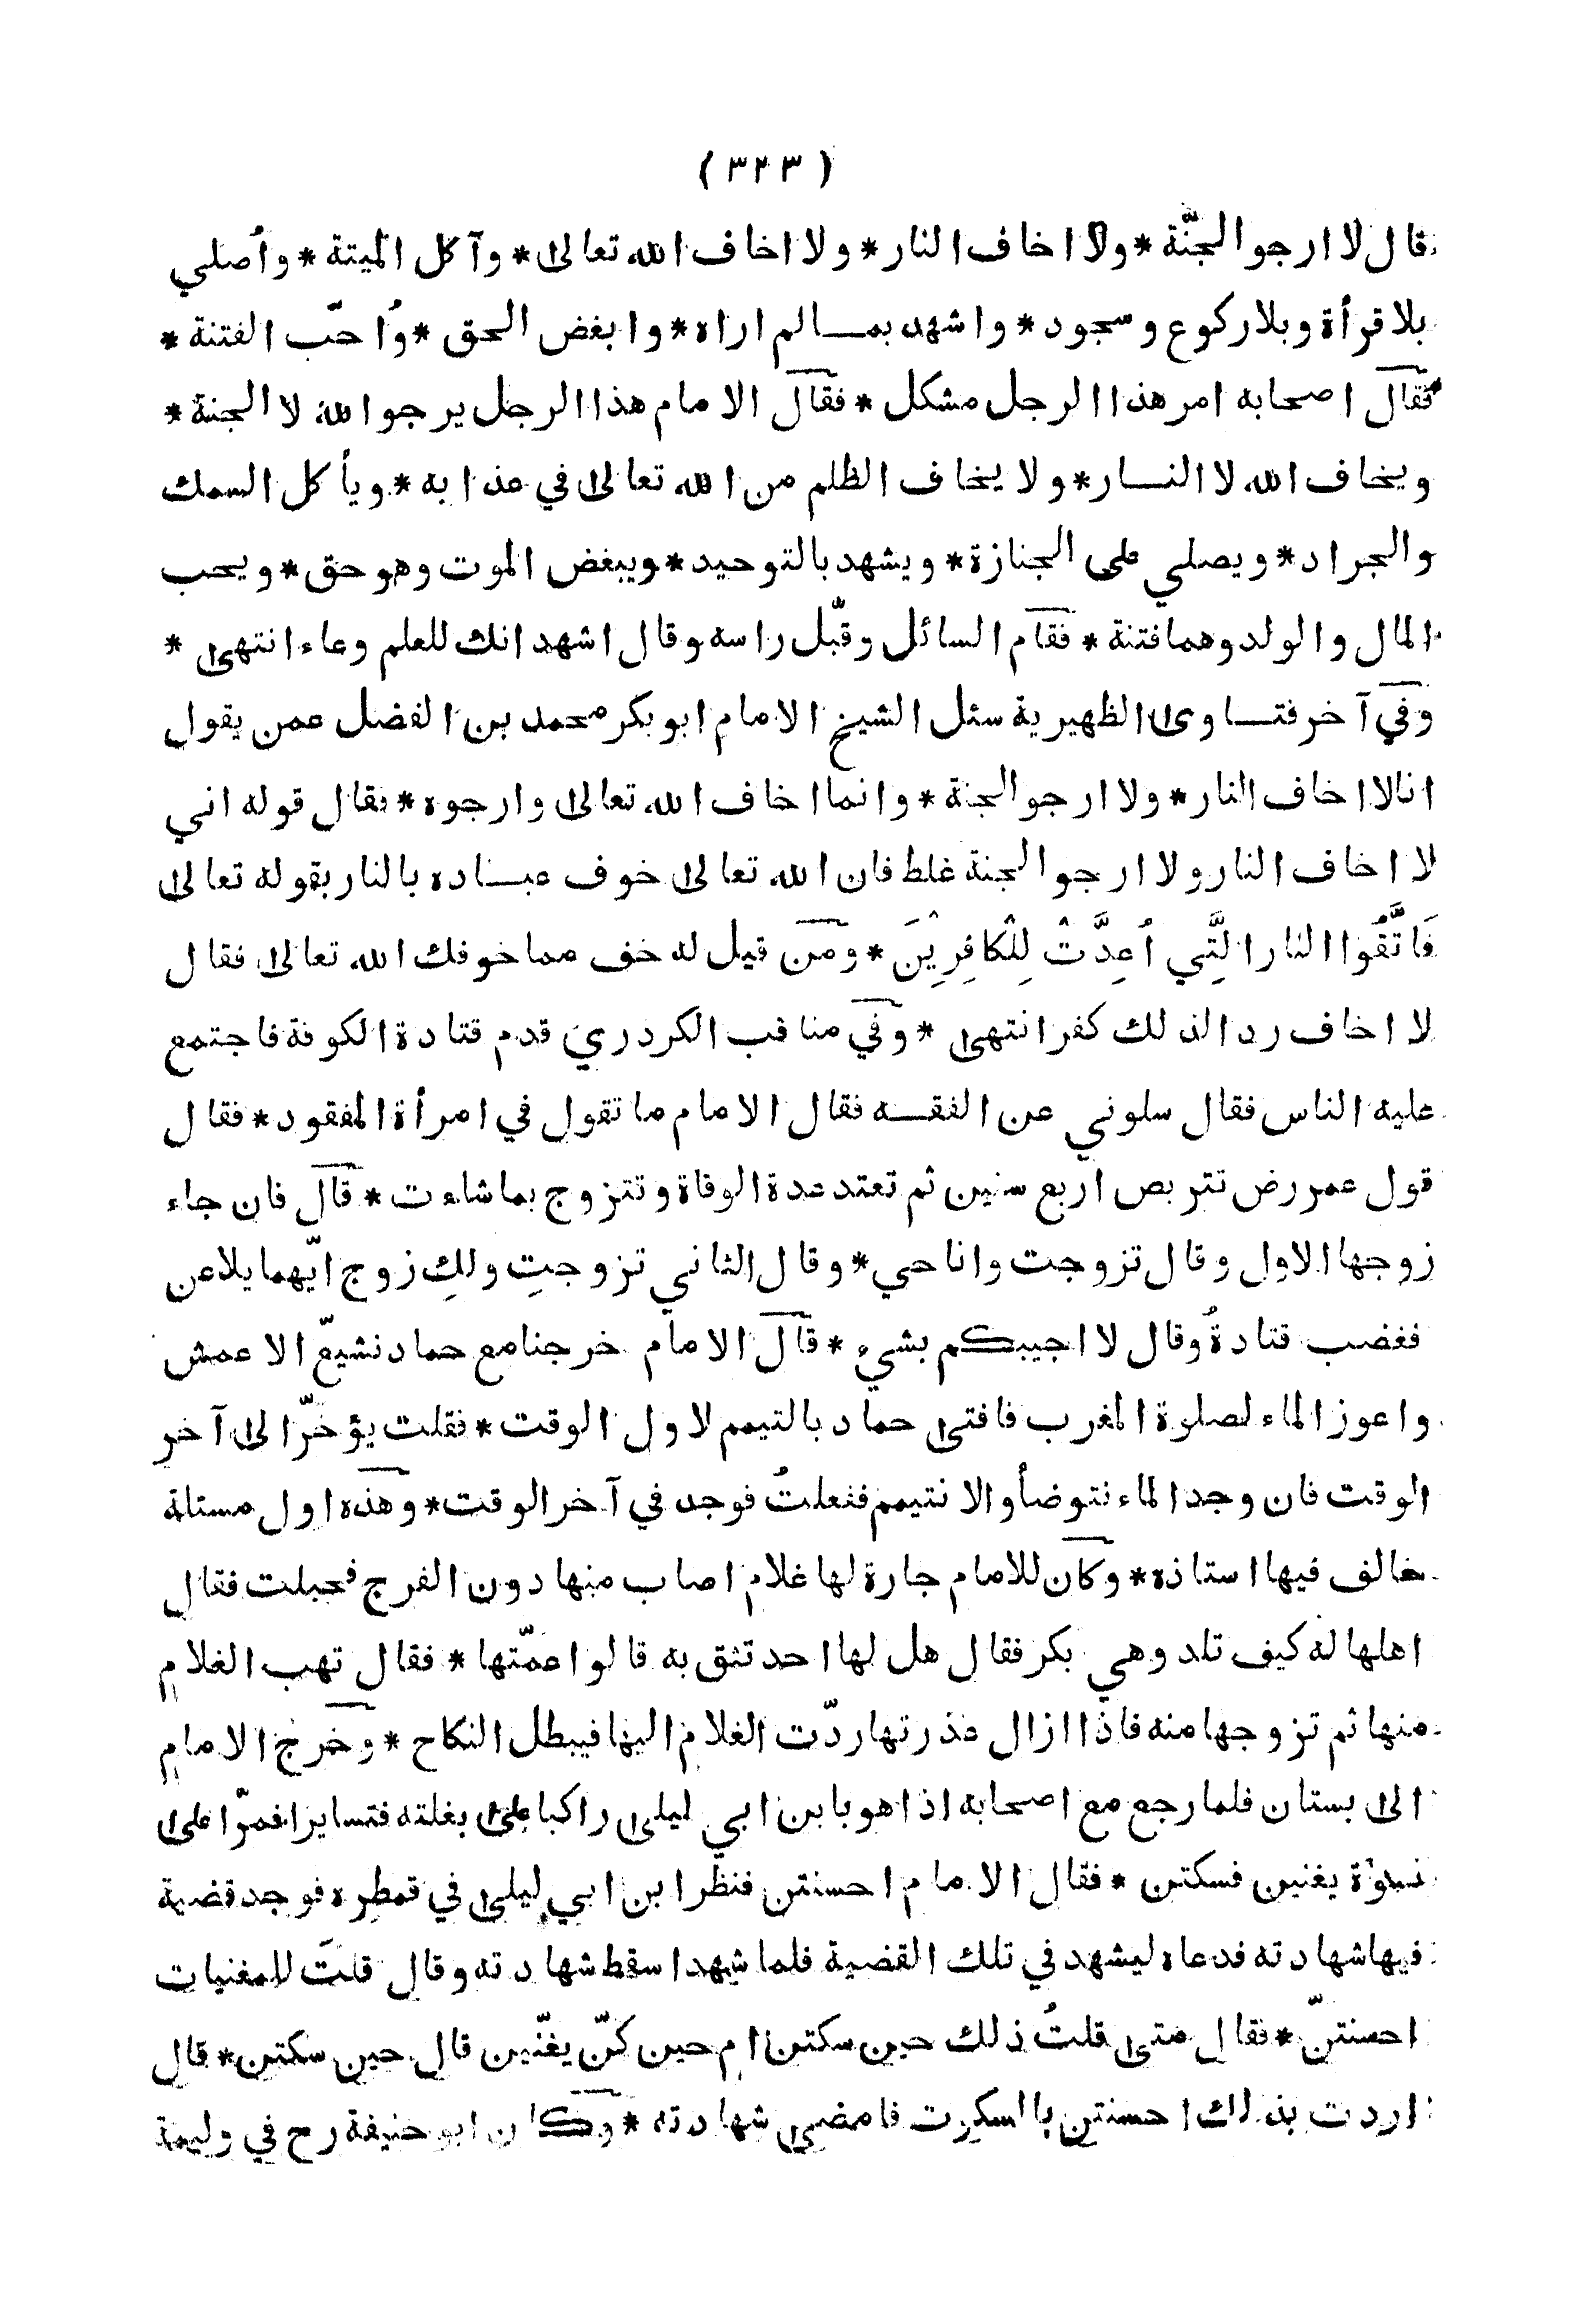 ( ٣٢٣ )
قال لا ارجو الجنّة * ولا اخاف النار * ولا اخاف الله تعالى * وآكل الميتة * واُصلي
بلا قرأة وبلا ركوع وسجود * واشهد بما لم اراه * وابغض الحق * واُحبّ الفتنة *
فقال اصحابه امر هذا الرجل مشكل * فقال الامام هذا الرجل يرجو الله لا الجنة *
ويخاف الله لا النار * ولا يخاف الظلم من الله تعالى في عذابه * ويأكل السمك
والجراد * ويصلي على الجنازة * ويشهد بالتوحيد * ويبغض الموت وهو حق * ويحب
المال والولد وهما فتنة * فقام السائل وقبّل راسه وقال اشهد انك للعلم وعاء انتهى *
وفي آخر فتاوى الظهيرية سئل الشيخ الامام ابو بكر محمد بن الفضل عمن يقول
انا لا اخاف النار * ولا ارجو الجنة * وانما اخاف الله تعالى وارجوه * بقال قوله اني
لا اخاف النار ولا ارجو الجنة غلط فان الله تعالى خوف عباده بالنار بقوله تعالى
فَاتَّقُوا النار الَّتِي اُعِدَّتْ لِلْكافِرِيْنَ * ومن قيل له خف مما خوفك الله تعالى فقال
لا اخاف ردا لذلك كفر انتهى * وفي مناقب الكردري قدم قتادة الكوفة فاجتمع
عليه الناس فقال سلوني عن الفقه فقال الامام ما تقول في امرأة المفقود * فقال
قول عمر رض تتربص اربع سنين ثم تعتد عدة الوفاة وتتزوج بما شاءت * قال فان جاء
زوجها الاول وقال تزوجت وانا حي * وقال الثاني تزوجتِ ولكِ زوج ايّهما يلاعن
فغضب قتادةُ وقال لا اجيبكم بشيء * قال الامام خرجنا مع حماد نشيعّ الاعمش
واعوز الماء لصلوة المغرب فافتى حماد بالتيمم لاول الوقت * فقلت يؤخرّ الى آخر
الوقت فان وجد الماء نتوضأ والا نتيمم ففعلتُ فوجد في آخر الوقت * وهذه اول مسئلة
خالف فيها استاذه * وكان للامام جارة لها غلام اصاب منها دون الفرج فحبلت فقال
اهلها له كيف تلد وهي بكر فقال هل لها احد تثق به قالوا عمّتها * فقال تهب الغلام
منها ثم تزوجها منه فاذا ازال عذرتها ردّت الغلام اليها فيبطل النكاح * وخرج الامام
الى بستان فلما رجع مع اصحابه اذا هو بابن ابي ليلى راكبا على بغلته فتسايرا فمرّا على
نسوة يغنين فسكتن * فقال الامام احسنتن فنظر ابن ابي ليلى في قمطره فوجد قضية
فيها شهادته فدعاه ليشهد في تلك القضية فلما شهد اسقط شهادته وقال قلتَ للمغنيات
احسنتنّ * فقال متى قلتُ ذلك حين سكتن ام حين كنّ يغنّين قال حين سكتن * قال
اردت بذلك احسنتن بالسكوت فامضى شهادته * وكان ابو حنيفة رح في وليمة